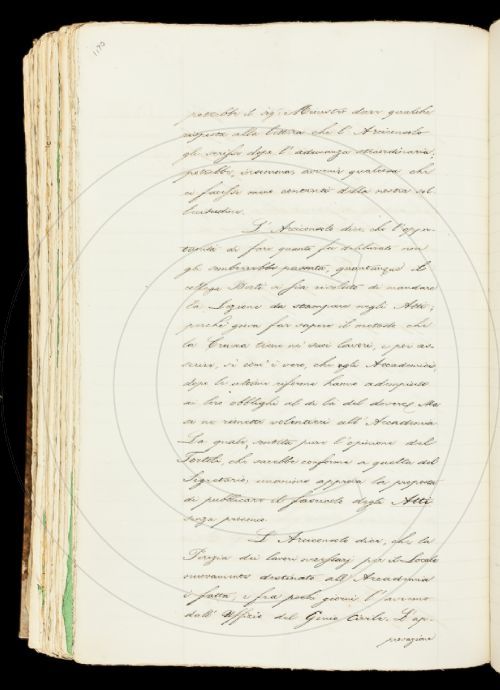 170
potrebbe il sig. Ministro dare qualche
risposta alla lettera che l'Arciconsolo
gli scrisse dopo l'adunanza straordinaria;
potrebbe, insomma, avvenir qualcosa che
ci facesse men contenti della nostra sol-
lecitudine.
L'Arciconsolo dice, che l'oppor-
tunità di fare quanto fu deliberato non
gli sembrerebbe passata, quantunque il
collega Berti si sia risoluto di mandare
la Lezione da stampare negli Atti;
perché giova far sapere il metodo che
la Crusca tiene ne' suoi lavori, e per as-
serire, sì com'è vero, che egli Accademici,
dopo le ultime riforme hanno adempiuto
ai loro obblighi al di là del dovere. Ma
se ne rimette volentieri all'Accademia.
La quale, sentita pure l'opinione del
Tortoli, che sarebbe conforme a quella del
Segretario, unanime approva la proposta
di pubblicare il fascicolo degli Atti
senza proemio.
L'Arciconsolo dice, che la
Perizia dei lavori necessarj per il Locale
nuovamente destinato all'Accademia
è fatta, e fra pochi giorni l'avremo
dall'Uffizio del Genio Civile. L'ap-
provazione